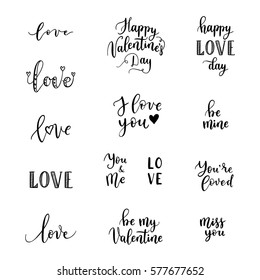 love
love
love
LOVE
love
Happy
Valentine's
Day
I love
you
You
&
Me
LO
VE
be my
Valentine
happy
LOVE
day
be
mine
You're
loved
miss
you
www.shutterstock.com · 577677652